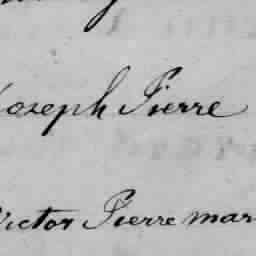 Joseph Pierre
Victor Pierre mar